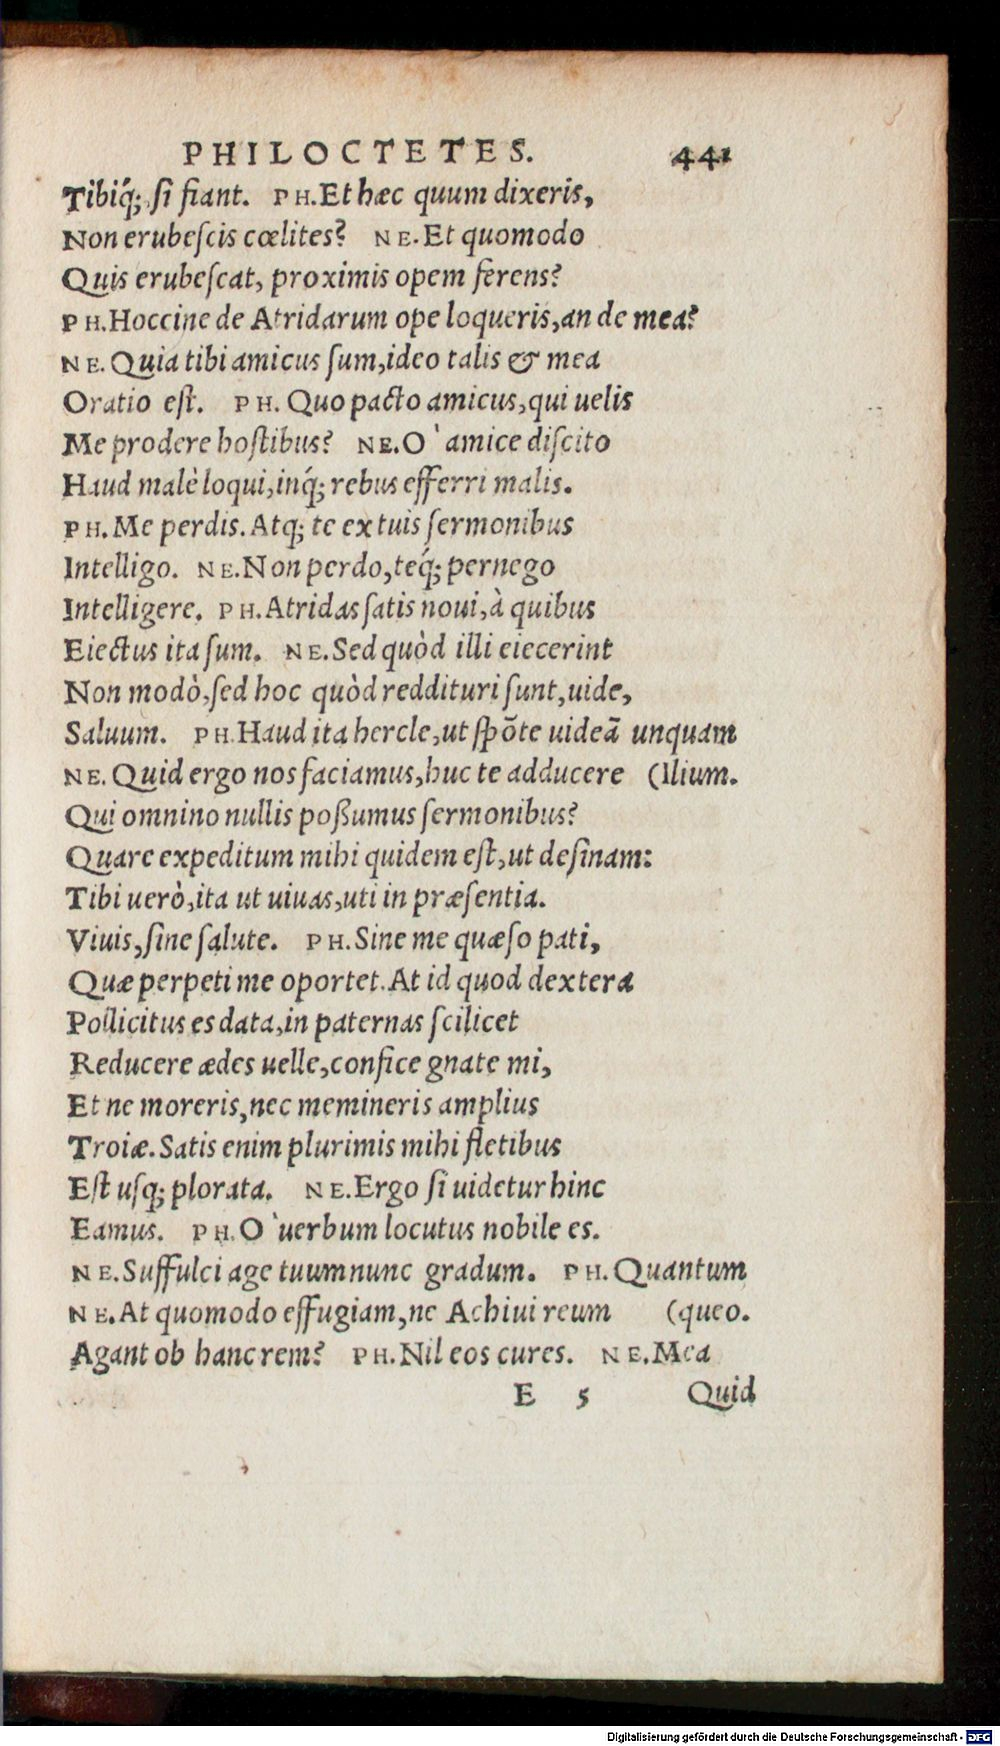 PHILOCTETES. 441
Tibiq́;, ſi fiant. PH.Et hæc quum dixeris,
Non erubeſcis cœlites? NE.Et quomodo
Quis erubeſcat, proximis opem ferens?
PH.Hoccine de Atridarum ope loqueris,an de mea?
NE.Quia tibi amicus ſum,ideo talis & mea
Oratio eſt. PH. Quo pacto amicus,qui uelis
Me prodere hoſtibus? NE.O` amice diſcito
Haud malè loqui,inq́; rebus efferri malis.
PH.Me perdis. Atq; te ex tuis ſermonibus
Intelligo. NE.Non perdo,teq́; pernego
Intelligere. PH.Atridas ſatis noui,à quibus
Eiectus ita ſum. NE.Sed quòd illi eiecerint
Non modò,ſed hoc quòd reddituri ſunt,uide,
Saluum. PH.Haud ita hercle,ut ſpōte uideā unquam
NE. Quid ergo nos faciamus,huc te adducere (Ilium.
Qui omnino nullis poßumus ſermonibus?
Quare expeditum mihi quidem eſt,ut deſinam:
Tibi uerò,ita ut uiuas,uti in præſentia.
Viuis,ſine ſalute. PH.Sine me quæſo pati,
Quæ perpeti me oportet.At id quod dextera
Pollicitus es data,in paternas ſcilicet
Reducere ædes uelle,confice gnate mi,
Et ne moreris,nec memineris amplius
Troiæ.Satis enim plurimis mihi fletibus
Eſt uſq; plorata. NE.Ergo ſi uidetur hinc
Eamus. PH.O `uerbum locutus nobile es.
NE.Suffulci age tuum nunc gradum. PH.Quantum
NE.At quomodo effugiam,ne Achiui reum (queo.
Agant ob hanc rem? PH.Nil eos cures. NE.Mea
E 5 Quid
Digitalisierung gefördert durch die Deutsche Forschungsgemeinschaft - DFG